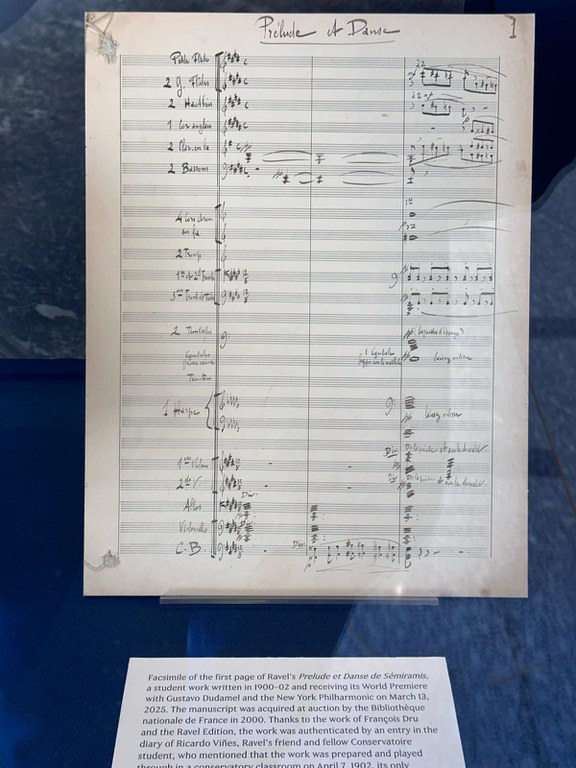 Prélude et Danse
1
2 g. Flûtes
2 Hautbois
1 Cor anglais
2 Bassons
2 Tromp.
2 Timbales
Cymbales
Tamtam
1 Harpe
1ers Violons
2ds V.
Altos
Violoncelles
C.B.
Div.
Facsimile of the first page of Ravel's Prelude et Danse de Sémiramis,
a student work written in 1900-02 and receiving its World Premiere
with Gustavo Dudamel and the New York Philharmonic on March 13,
2025. The manuscript was acquired at auction by the Bibliothèque
nationale de France in 2000. Thanks to the work of François Dru
and the Ravel Edition, the work was authenticated by an entry in the
diary of Ricardo Viñes, Ravel's friend and fellow Conservatoire
student, who mentioned that the work was prepared and played
through in a conservatory classroom on April 7, 1902, its only